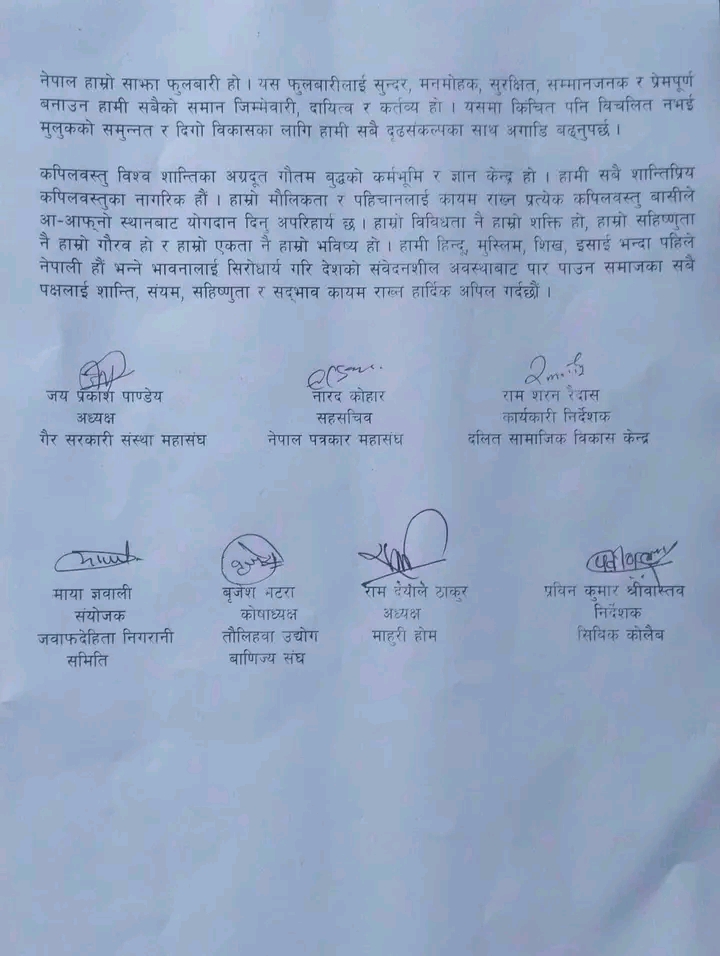 नेपाल हाम्रो साझा फुलबारी हो । यस फुलबारीलाई सुन्दर, मनमोहक, सुरक्षित, सम्मानजनक र प्रेमपूर्ण
बनाउन हामी सबैको समान जिम्मेवारी, दायित्व र कर्तव्य हो । यसमा किंचित पनि विचलित नभई
मुलुकको समुन्नत र दिगो विकासका लागि हामी सबै दृढसंकल्पका साथ अगाडि बढ्नुपर्छ ।
कपिलवस्तु विश्व शान्तिका अग्रदूत गौतम बुद्धको कर्मभूमि र ज्ञान केन्द्र हो । हामी सबै शान्तिप्रिय
कपिलवस्तुका नागरिक हौं । हाम्रो मौलिकता र पहिचानलाई कायम राख्न प्रत्येक कपिलवस्तु बासीले
आ-आफ्नो स्थानबाट योगदान दिनु अपरिहार्य छ । हाम्रो विविधता नै हाम्रो शक्ति हो, हाम्रो सहिष्णुता
नै हाम्रो गौरव हो र हाम्रो एकता नै हाम्रो भविष्य हो । हामी हिन्दू, मुस्लिम, शिख, इसाई भन्दा पहिले
नेपाली हौं भन्ने भावनालाई सिरोधार्य गरि देशको संवेदनशील अवस्थाबाट पार पाउन समाजका सबै
पक्षलाई शान्ति, संयम, सहिष्णुता र सद्भाव कायम राख्न हार्दिक अपिल गर्दछौं ।
जय प्रकाश पाण्डेय नारद कोहार राम शरन रैदास
अध्यक्ष सहसचिव कार्यकारी निर्देशक
गैर सरकारी संस्था महासंघ नेपाल पत्रकार महासंघ दलित सामाजिक विकास केन्द्र
माया ज्ञवाली बृजेश भटरा राम देयीले ठाकुर प्रविन कुमार श्रीवास्तव
संयोजक कोषाध्यक्ष अध्यक्ष निर्देशक
जवाफदेहिता निगरानी तौलिहवा उद्योग माहुरी होम सिविक कोलैब
समिति बाणिज्य संघ